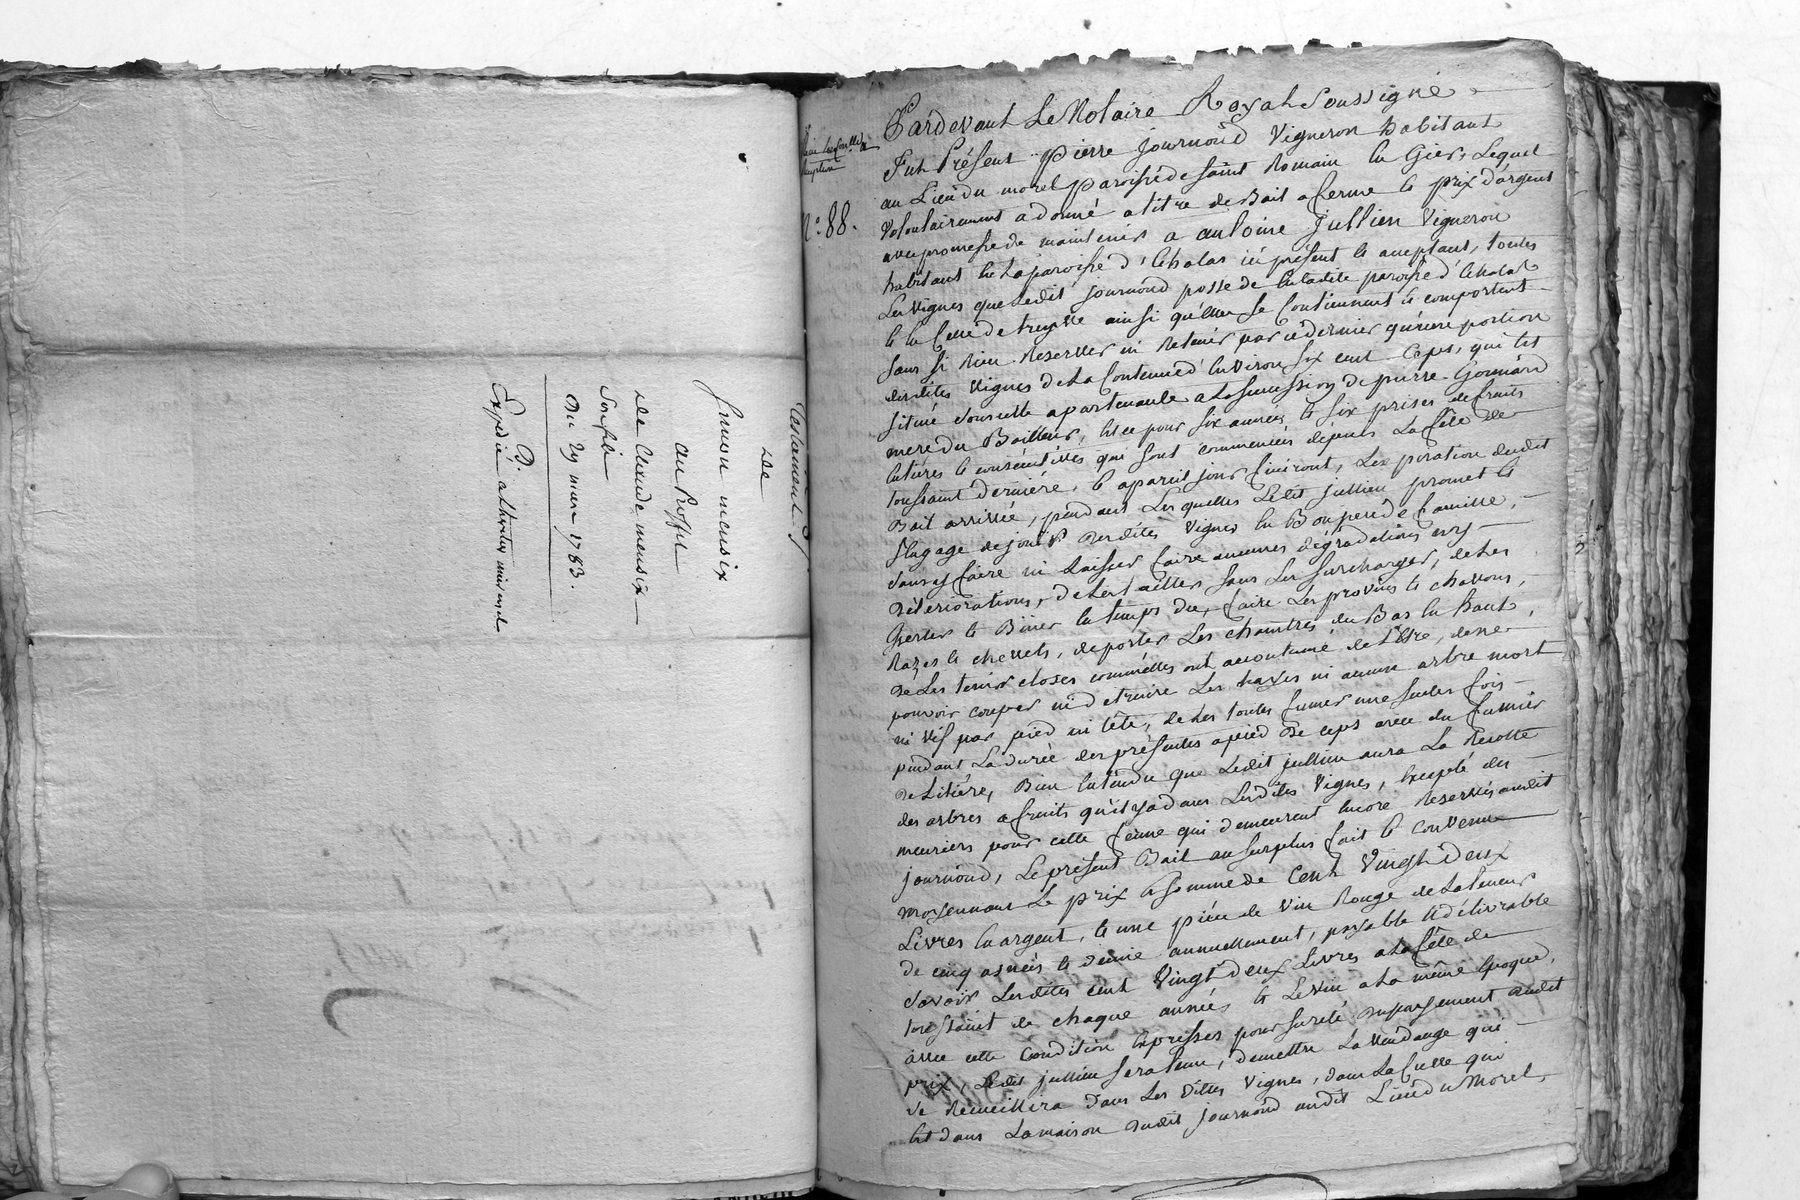 Testament
de
Simon meusix
au Proffit
de Claude meusix
son fils
Du 29 mars 1783.
Expedié
N.º 88.
Pardevant Le Notaire Royal Soussigné
Fut Présent pierre journoud Vigneron habitant
au Lieu du morel paroisse de saint Romain En Gier, Lequel
Volontairement a donné a titre de Bail a ferme le prix d'argent
avec promesse de maintenir a antoine jullien Vigneron
habitant En La paroisse d'Echalas ici présent Et acceptant, toutes
Les Vignes que Ledit journoud possede En Ladite paroisse d'Echalas
Et En Celle de treyve ainsi qu'elles se Contiennent Et comportent
sans si Rien Reserver ni Retenir par ce dernier qu'une portion
desdites Vignes de La Contenue d'Environ six cent Ceps, qui Est
situé dans celle apartenante a La succession de pierre
mere du Bailleur, Et ce pour six années Et six prises de fruits
Entieres Et consécutives qui sont commencées depuis La fête de
toussaint derniére, Et a pareil jour finiront, L'expiration dudit
Bail arrivée, pendant Lesquelles Ledit jullien promet Et
s'Engage de jouir desdites Vignes En Bon pere de famille,
sans y faire ni Laisser faire aucunes dégradations ny
déteriorations, de Les tailler sans Les surcharger, de Les
Et Biner En temps du, faire Les provins Et chavons,
Razes Et chevets, de porter Les chaintres du Bas En haut,
de Les tenir closes comme elles ont accoutumé de L'Etre, de ne
pouvoir couper ni detruire Les hayes ni aucun arbre mort
ni Vif par pied ni tête, de Les toutes fumer une seules fois
pendant La durée des présentes a pied de ceps avec du fumier
de Litiére, Bien Entendu que Ledit jullien aura La Recolte
des arbres a fruits qu'il y a dans Lesdites Vignes, Excepté des
meuriers pour cette ferme qui demeurent Encore Reservés audit
journoud, Le présent Bail au surplus fait Et convenu
moyennant Le prix Et somme de Cent Vingt deux
Livres En argent, Et une piéce de Vin Rouge de La teneur
de cinq asnées Et demie annuellement, payable Et délivrable
savoir Lesdites cent Vingt deux Livres a La fête de
toussaint de chaque année Et Le Vin a La même Epoque,
avec cette Condition Expresses pour sureté du payement dudit
prix, Ledit jullien sera tenu, de mettre La Vendange qui
se Recueillira dans Les dittes Vignes, dans La Cuve qui
Est dans La maison dudit journoud audit Lieu du Morel,